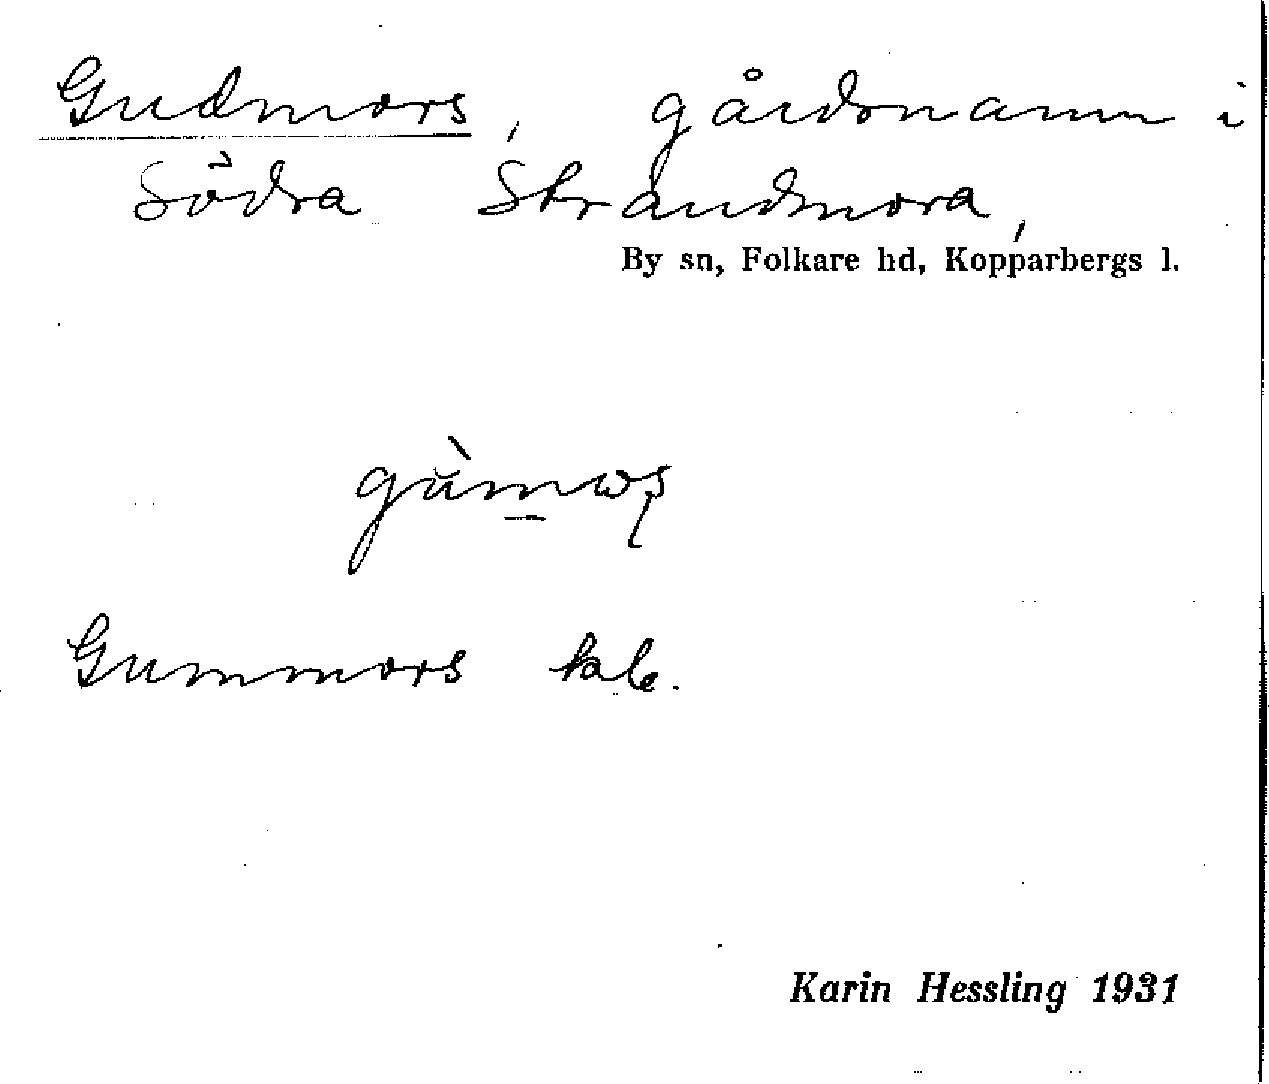 Gudmors, gårdsnamn i
Södra Strandmora,
By sn, Folkare hd, Kopparbergs l.
Gummors
Karin Hessling 1931